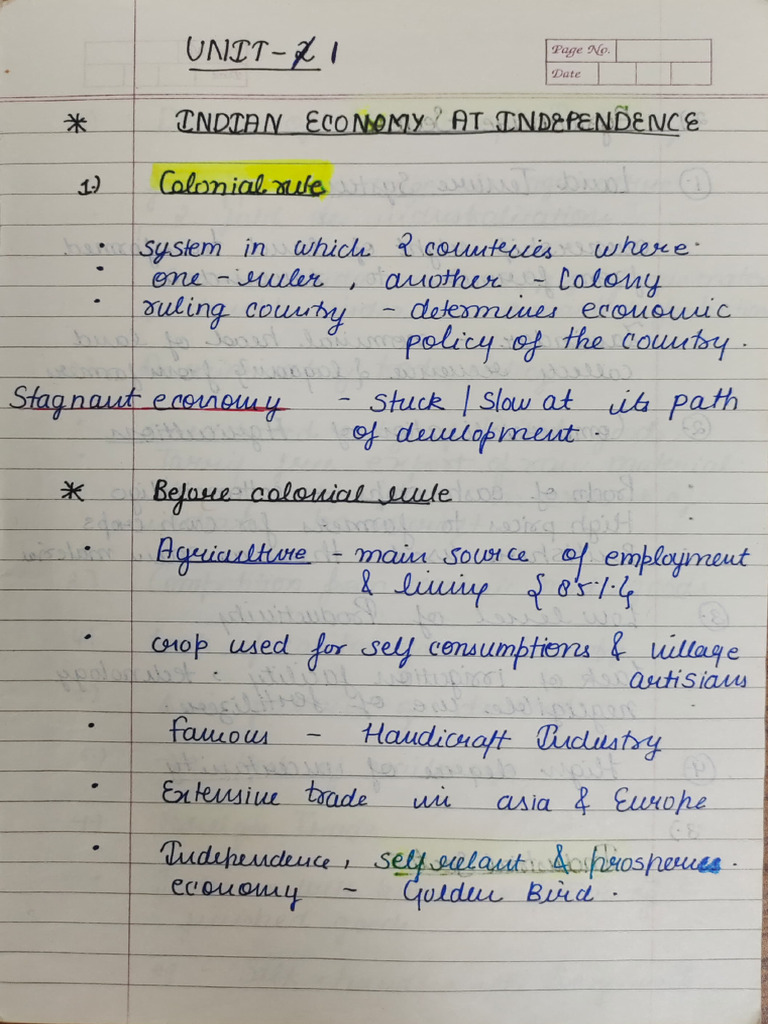 UNIT-1
Page No.
Date
* INDIAN ECONOMY AT INDEPENDENCE
1.) Colonial rule
• system in which 2 counteries where
• one-ruler, another - Colony
• ruling country - determines economic
policy of the country.
Stagnant economy - Stuck | Slow at its path
of development.
* Before colonial rule
• Agriculture - main source of employment
& living {85%}
• crop used for self consumptions & village
artisians
• famous - Handicraft Industry
• Extensive trade in asia & Europe
• Independence, self relant & prosperus.
economy - Golden Bird.